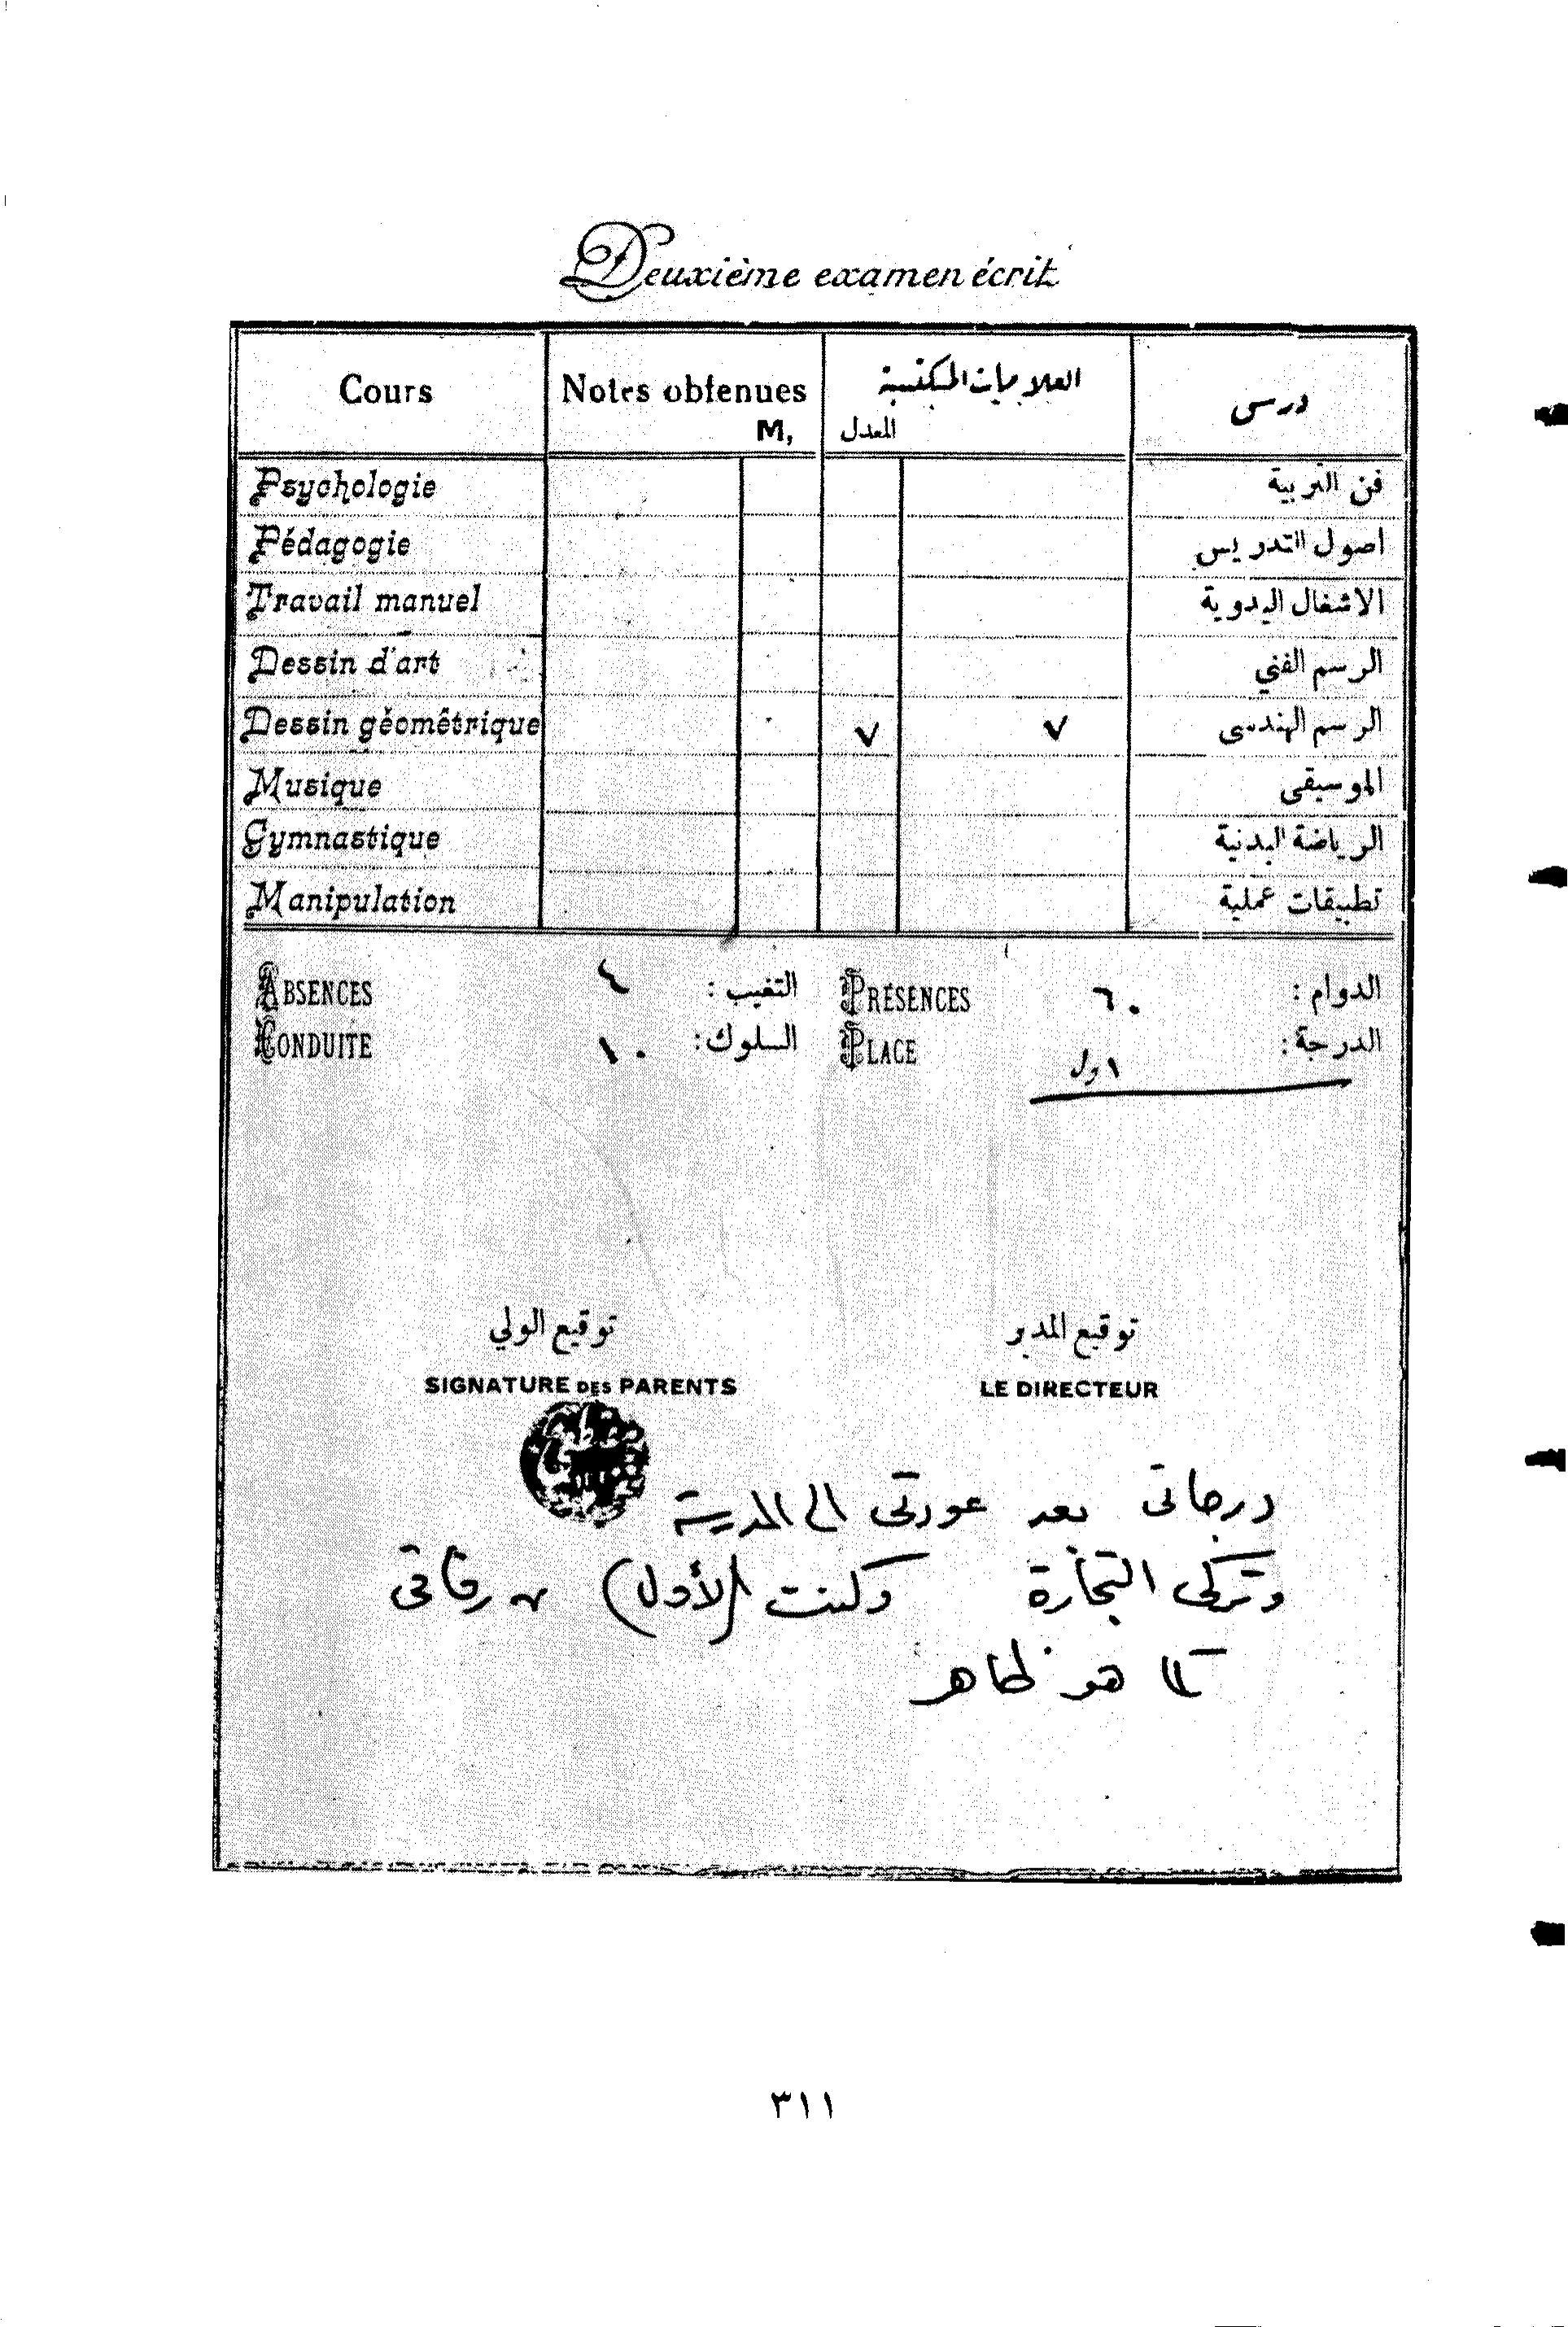 Deuxième examen écrit
Cours Notes obtenues العلامات المكتسبة درس
M, المعدل
Psychologie فن التربية
Pédagogie اصول التدريس
Travail manuel الاشغال اليدوية
Dessin d'art الرسم الفني
Dessin géométrique ٧ ٧ الرسم الهندسى
Musique الموسيقى
Gymnastique الرياضة البدنية
Manipulation تطبيقات عملية
ABSENCES ٤ التغيب : PRÉSENCES ٦٠ الدوام :
CONDUITE ١٠ السلوك: PLACE اول الدرجة:
توقيع الولي توقيع المدير
SIGNATURE DES PARENTS LE DIRECTEUR
درجاتى بعد عودتى الى المدرسة
وتركى التجارة وكنت (الأول) من رفاقى
كما هو ظاهر
٣١١